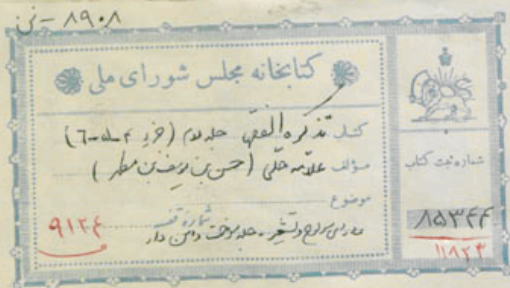 ۸۹۰۸ - ف
کتابخانه مجلس شورای ملی
کتاب تذکره الفقها جلد دوم (جزء ۴-۵-۶)
مؤلف علامه حلی (حسن بن یوسف بن مطهر)
موضوع
شماره قفسه
۹۱۲۴
شماره ثبت کتاب
۸۵۳۴۴
۱۱۸۲۳